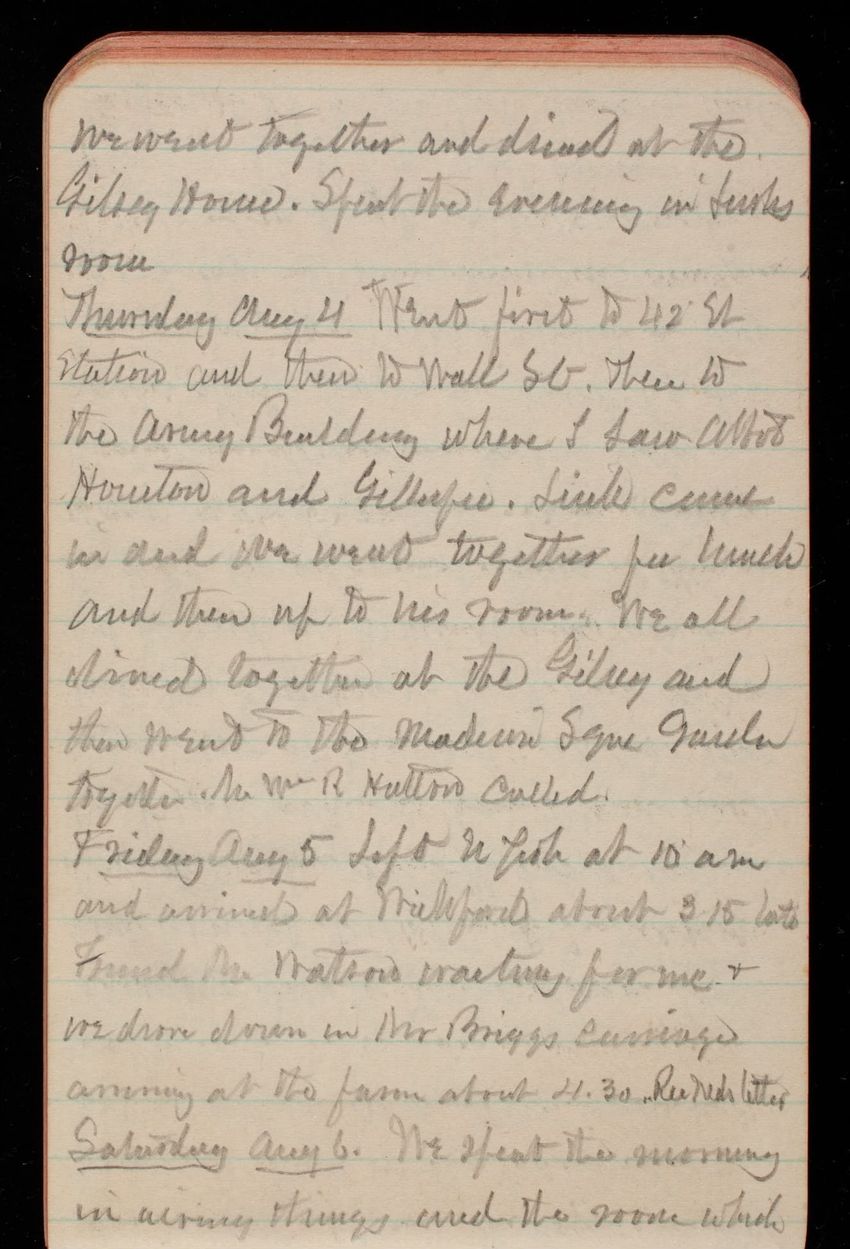 we went together and dined at the
Gilsey House. Spent the evening in Lusks
room
Thursday Aug 4 Went first to 42 St
Station and then to Wall St. Then to
the Army Building where I saw Abbot
Houston and Gillespie. Lusk came
in and we went together for lunch
and then up to his room. We all
dined together at the Gilsey and
then went to the Madison Sque Garden
together. Mr Wm R Hutton called.
Friday Aug 5 Left N York at 10 am
and arrived at Wickford about 3 15 late
Found Mr Watson waiting for me &
we drove down in Mr Briggs carriage
arriving at the farm about 4.30. Rec letter
Saturday Aug 6. We spent the morning
in airing things and the room which